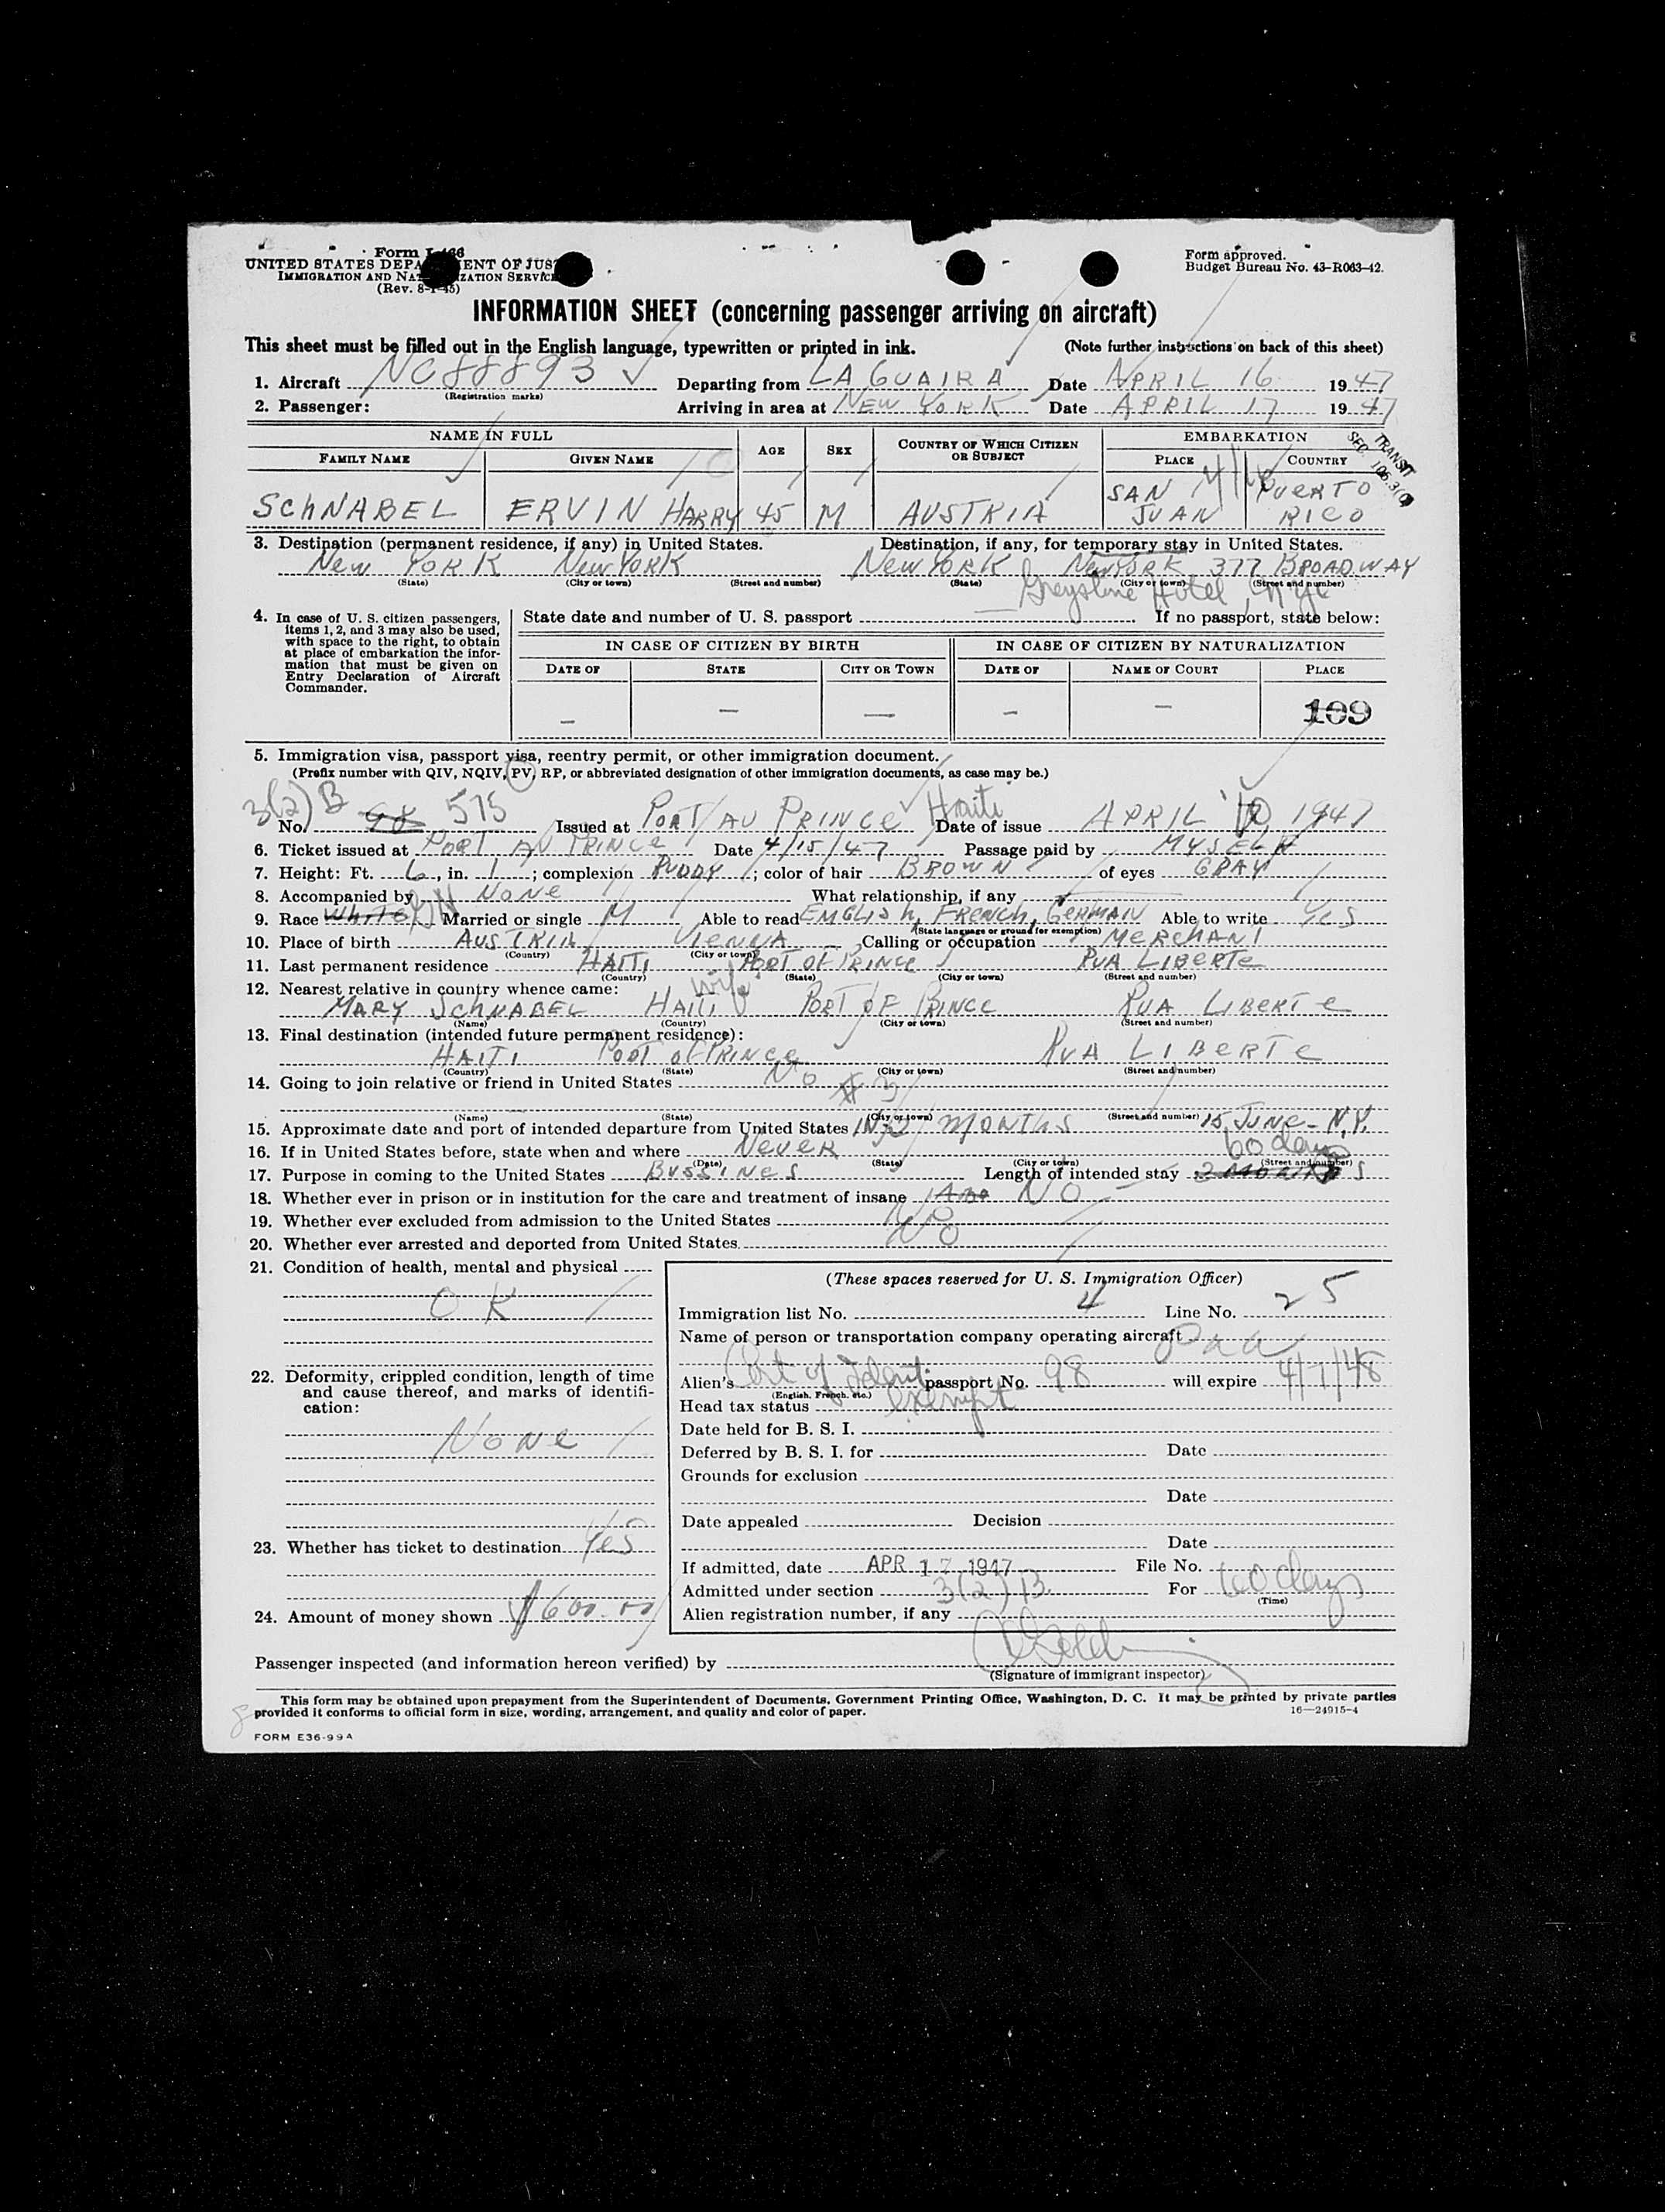 Form I-466
UNITED STATES DEPARTMENT OF JUSTICE
IMMIGRATION AND NATURALIZATION SERVICE
(Rev. 8-1-45)
Form approved.
Budget Bureau No. 43-R063-42.
INFORMATION SHEET (concerning passenger arriving on aircraft)
This sheet must be filled out in the English language, typewritten or printed in ink. (Note further instructions on back of this sheet)
1. Aircraft NC88893 Departing from LA GUAIRA Date APRIL 16 1947
(Registration marks)
2. Passenger: Arriving in area at NEW YORK Date APRIL 17 1947
NAME IN FULL AGE SEX COUNTRY OF WHICH CITIZEN OR SUBJECT EMBARKATION
FAMILY NAME GIVEN NAME PLACE COUNTRY
TRANSIT
SEC. 105.3(
SCHNABEL ERVIN HARRY 45 M AUSTRIA SAN JUAN PUERTO RICO
4/16
3. Destination (permanent residence, if any) in United States. Destination, if any, for temporary stay in United States.
New YORK New YORK New YORK New YORK 377 BROADWAY
(State) (City or town) (Street and number) (State) (City or town) (Street and number)
Greystone Hotel, NYC
4. In case of U. S. citizen passengers, items 1, 2, and 3 may also be used, with space to the right, to obtain at place of embarkation the information that must be given on Entry Declaration of Aircraft Commander.
State date and number of U. S. passport — If no passport, state below:
IN CASE OF CITIZEN BY BIRTH IN CASE OF CITIZEN BY NATURALIZATION
DATE OF STATE CITY OR TOWN DATE OF NAME OF COURT PLACE
– – – – – 109
5. Immigration visa, passport visa, reentry permit, or other immigration document.
(Prefix number with QIV, NQIV, PV, RP, or abbreviated designation of other immigration documents, as case may be.)
3(2)B
No. 98 575 Issued at PORT AU PRINCE Haiti Date of issue APRIL 10, 1947
6. Ticket issued at PORT AU PRINCE Date 4/15/47 Passage paid by MYSELF
7. Height: Ft. 6, in. 1; complexion RUDDY; color of hair BROWN of eyes GRAY
8. Accompanied by NONE What relationship, if any
9. Race White Married or single M Able to read ENGLISH, FRENCH, GERMAN Able to write YES
(State language or ground for exemption)
10. Place of birth AUSTRIA VIENNA Calling or occupation MERCHANT
(Country) (City or town)
11. Last permanent residence HAITI PORT OF PRINCE RUA LIBERTE
(Country) (State) (City or town) (Street and number)
12. Nearest relative in country whence came: wife
MARY SCHNABEL HAITI PORT OF PRINCE RUA LIBERTE
(Name) (Country) (City or town) (Street and number)
13. Final destination (intended future permanent residence):
HAITI PORT OF PRINCE RUA LIBERTE
(Country) (State) (City or town) (Street and number)
14. Going to join relative or friend in United States NO
(Name) (State) (City or town) (Street and number)
15. Approximate date and port of intended departure from United States IN 2 MONTHS 15 JUNE - N.Y.
16. If in United States before, state when and where NEVER
(Date) (State) (City or town) (Street and number)
60 days
17. Purpose in coming to the United States BUSSINES Length of intended stay 2 MONTHS
18. Whether ever in prison or in institution for the care and treatment of insane NO
19. Whether ever excluded from admission to the United States NO
20. Whether ever arrested and deported from United States. NO
21. Condition of health, mental and physical
OK
22. Deformity, crippled condition, length of time and cause thereof, and marks of identification:
NONE
23. Whether has ticket to destination YES
24. Amount of money shown $600.00
(These spaces reserved for U. S. Immigration Officer)
Immigration list No. 4 Line No. 25
Name of person or transportation company operating aircraft Paa
Alien's Cert of Ident. passport No. 98 will expire 4/7/48
(English, French, etc.)
Head tax status exempt
Date held for B. S. I.
Deferred by B. S. I. for Date
Grounds for exclusion
Date
Date appealed Decision
Date
If admitted, date APR 17 1947 File No.
Admitted under section 3(2)B. For 60 days
(Time)
Alien registration number, if any
Passenger inspected (and information hereon verified) by
(Signature of immigrant inspector)
This form may be obtained upon prepayment from the Superintendent of Documents, Government Printing Office, Washington, D. C. It may be printed by private parties
provided it conforms to official form in size, wording, arrangement, and quality and color of paper. 16—24915-4
FORM E36-99A